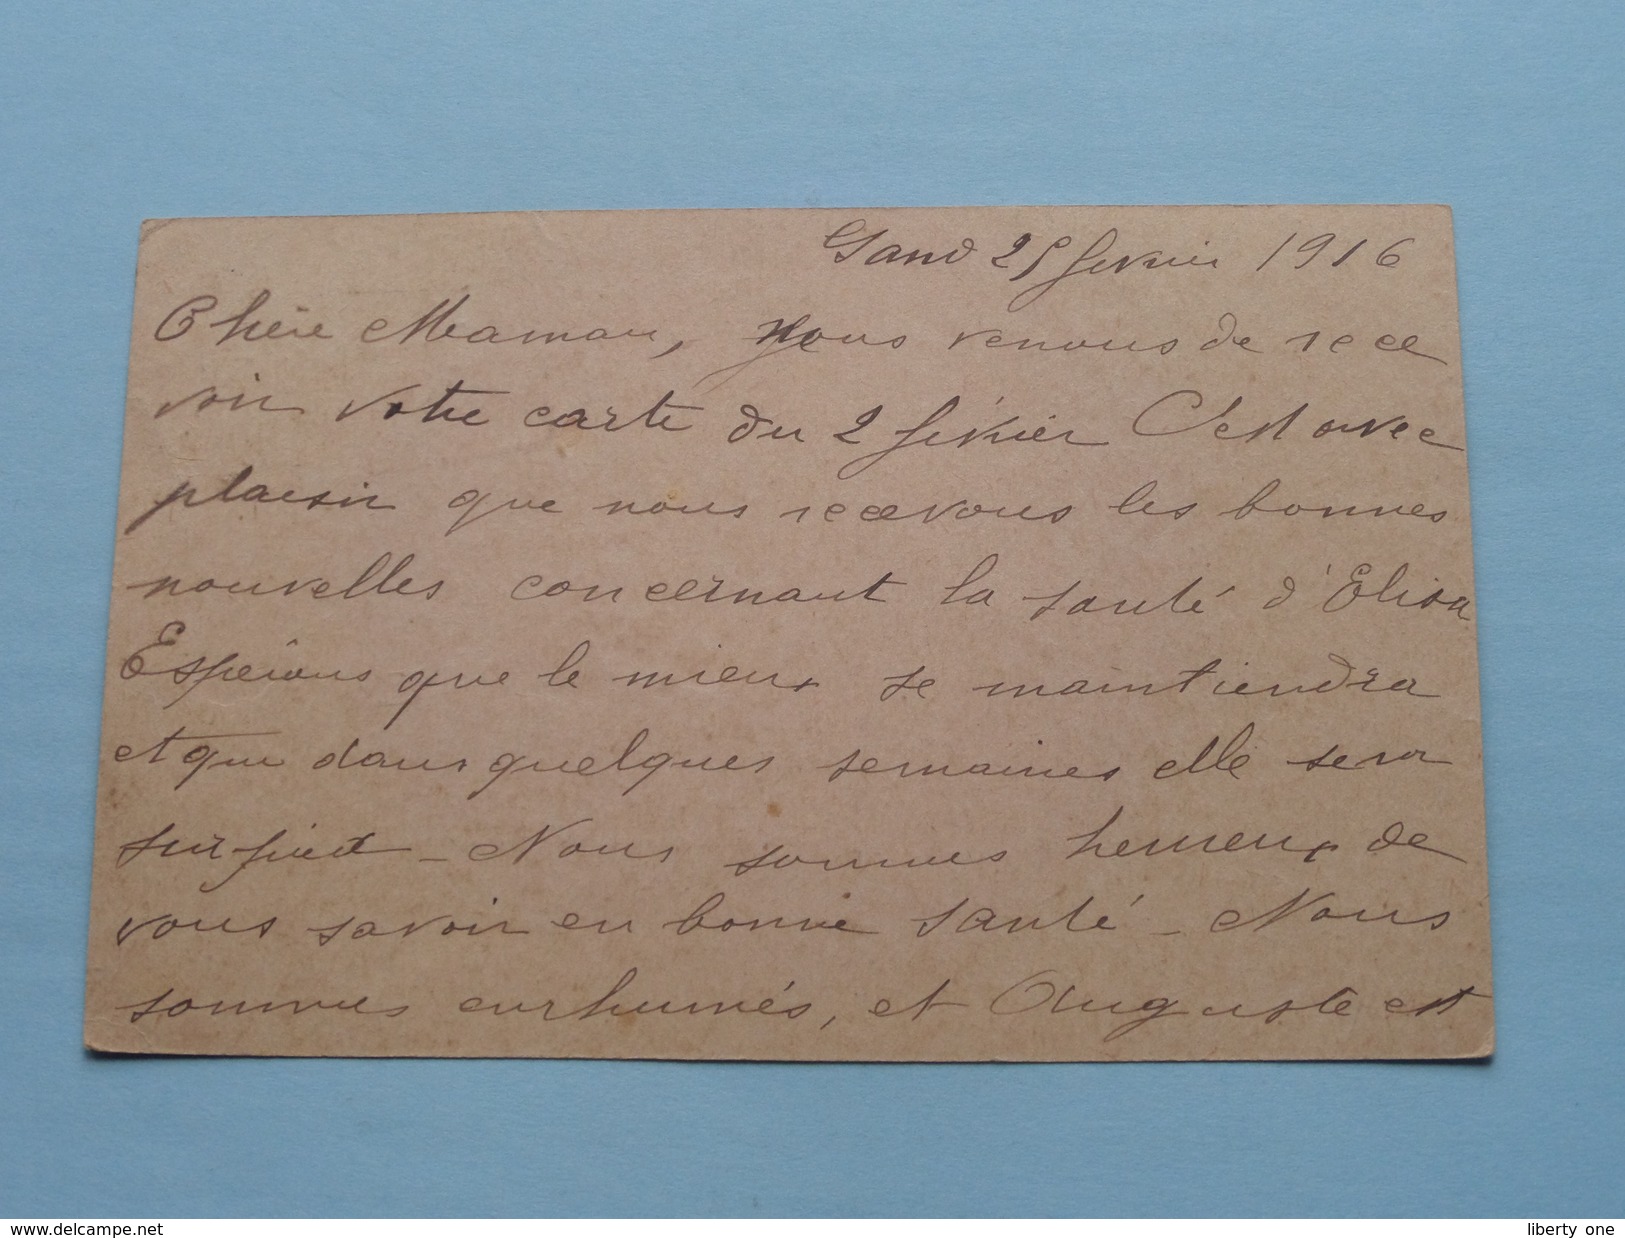 Gand 25 fevrier 1916
Chère Maman, Nous venons de rece
voir votre carte du 2 février C'est avec
plaisir que nous recevons les bonnes
nouvelles concernant la santé d'Elisa
Espérons que le mieux se maintiendra
et que dans quelques semaines elle sera
sur pied - Nous sommes heureux de
vous savoir en bonne santé - Nous
sommes enrhumés, et Auguste est
www.delcampe.net
liberty_one